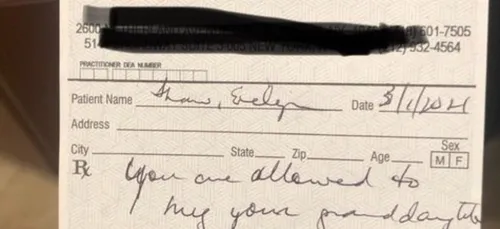 2600 601-7505
51 932-4564
PRACTITIONER DEA NUMBER
Patient Name Shaw, Evelyn Date 3/1/2021
Address
City State Zip Age Sex M F
Rx You are allowed to
hug your granddaughte